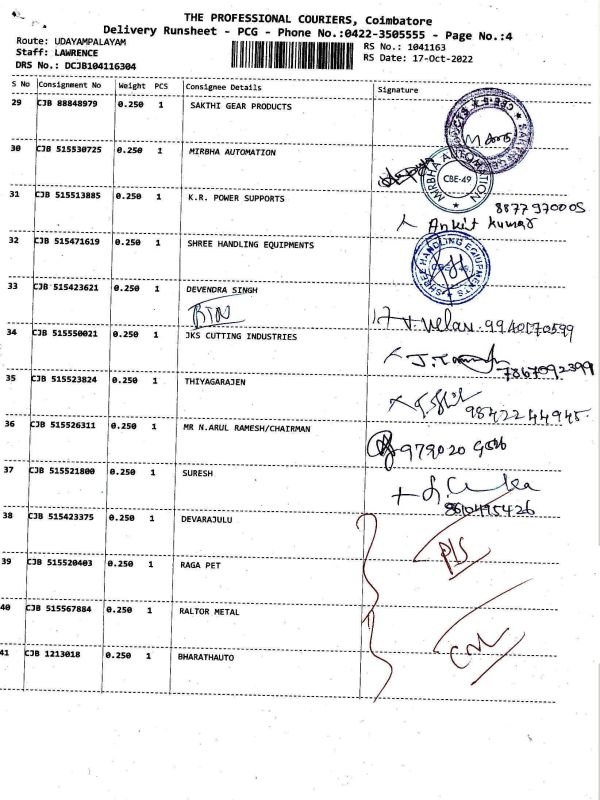 THE PROFESSIONAL COURIERS, Coimbatore
Delivery Runsheet - PCG - Phone No.:0422-3505555 - Page No.:4
Route: UDAYAMPALAYAM
RS No.: 1041163
Staff: LAWRENCE
RS Date: 17-Oct-2022
DRS No.: DCJB104116304
S No Consignment No Weight PCS Consignee Details Signature
29 CJB 88848979 0.250 1 SAKTHI GEAR PRODUCTS
30 CJB 515530725 0.250 1 MIRBHA AUTOMATION
MIRBHA AUTOMATION CBE-49
31 CJB 515513885 0.250 1 K.R. POWER SUPPORTS
8877970005
Ankit kumar
32 CJB 515471619 0.250 1 SHREE HANDLING EQUIPMENTS
SHREE HANDLING EQUIPMENTS
33 CJB 515423621 0.250 1 DEVENDRA SINGH
34 CJB 515550021 0.250 1 JKS CUTTING INDUSTRIES
7867092399
35 CJB 515523824 0.250 1 THIYAGARAJEN
9842244945
36 CJB 515526311 0.250 1 MR N.ARUL RAMESH/CHAIRMAN
37 CJB 515521800 0.250 1 SURESH
8610495426
38 CJB 515423375 0.250 1 DEVARAJULU
39 CJB 515520403 0.250 1 RAGA PET
40 CJB 515567884 0.250 1 RALTOR METAL
41 CJB 1213018 0.250 1 BHARATHAUTO